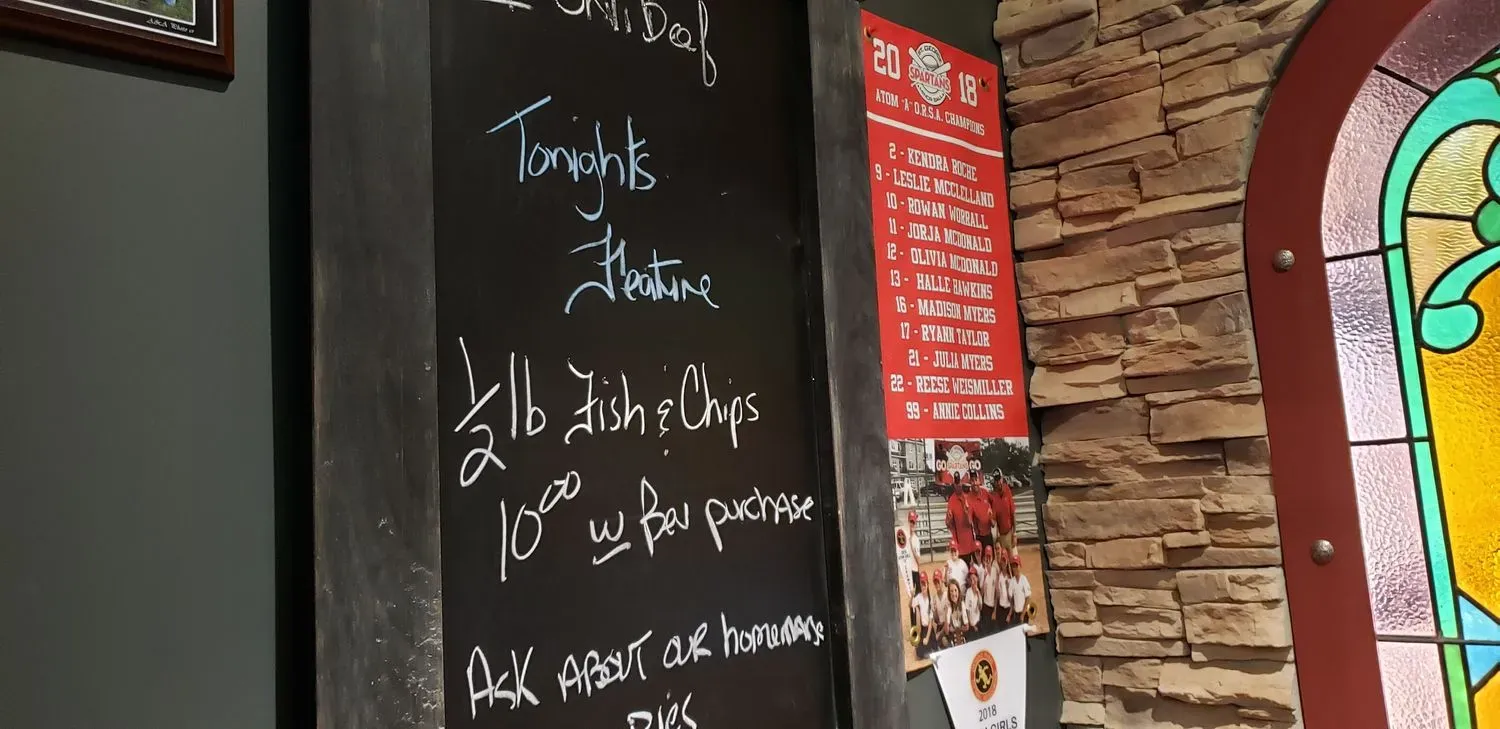 Beef
Tonights
Feature
1/2 lb Fish & Chips
10⁰⁰ w Bev purchase
ASK ABOUT OUR homemade
PIES
20 18
SPARTANS
ATOM "A" O.R.S.A. CHAMPIONS
2 - KENDRA ROCHE
9 - LESLIE MCCLELLAND
10 - ROWAN WORRALL
11 - JORJA MCDONALD
12 - OLIVIA MCDONALD
13 - HALLE HAWKINS
16 - MADISON MYERS
17 - RYANN TAYLOR
21 - JULIA MYERS
22 - REESE WEISMILLER
99 - ANNIE COLLINS
GO SPARTANS GO
2018
GIRLS